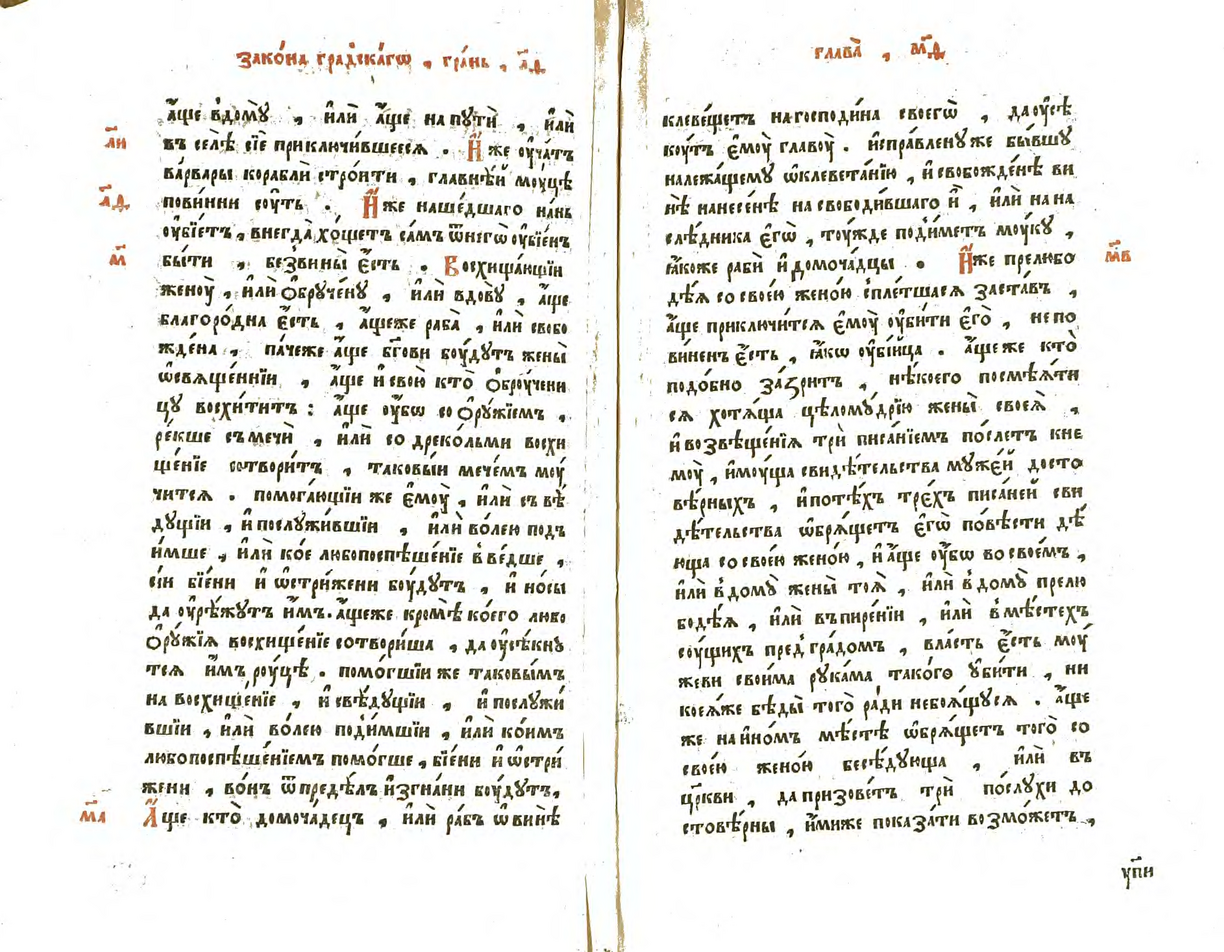 Зако́на гра́дскагѡ , гра́нь , л҃д
а҆́ще в̾дому̀ , и҆лѝ а҆́ще на пꙋтѝ , и҆лѝ
л҃и
въ селѣ̀ сїѐ приключи́вшееся . И҆̀же оу҆ча́тъ
ва́рвары кораблѝ стро́ити , гла́внѣй моу́цѣ
л҃д
пови́нни соу́ть . И҆̀же наше́дшаго на́нь
оу҆бїе́тъ , внегда̀ хо́щетъ са́мъ ѿ негѡ̀ оу҆бїе́нъ
м҃
бы́ти , безвины̀ є҆́сть . Восхища́ющїи
женоу̀ , и҆лѝ ѻ҆брꙋче́нꙋ , и҆лѝ вдовꙋ̀ , а҆́ще
благоро́дна є҆́сть , а҆́щеже раба̀ , и҆лѝ свобо
жде́на , па́чеже а҆́ще бг҃ови боу́дꙋтъ жены̀
ѡ҆свяще́ннїи , а҆́ще и҆ свою̀ кто̀ ѻ҆броуче́ни
цꙋ восхи́титъ : а҆́ще оу҆́бѡ со ѻ҆рꙋ́жїемъ ,
ре́кше съ мечѝ , и҆лѝ со дреко́льми восхи
ще́нїе сотвори́тъ , таковы́и мече́мъ моу́
чится . помога́ющїи же є҆моу̀ , и҆лѝ съ вѣ́
дꙋщїи , и҆ послꙋжи́вшїи , и҆лѝ во́лею под̾
и҆́мше , и҆лѝ ко́е любопоспѣше́нїе в̾ве́дше ,
сі́и бїе́ни и҆ ѡ҆стри́жени боу́дꙋтъ , и҆ но́сы
да оу҆рѣ́жꙋтъ и҆̀мъ . а҆́щеже кромѣ̀ ко́его любо
ѻ҆рꙋ́жїя восхище́нїе сотвори́ша , да оу҆сѣ́кнꙋ
тся и҆̀мъ роу́цѣ . помо́гшїи же таковы́мъ
на восхище́нїе , и҆ свѣ́дꙋщїи , и҆ послꙋжи́
вшїи , и҆лѝ во́лею поди́мшїи , и҆лѝ ко́имъ
любопоспѣше́нїемъ помо́гше , бїе́ни и҆ ѡ҆стри́
жени , во́нъ ѿ предѣ́лъ и҆згна́ни боу́дꙋтъ ,
м҃а
А҆́ще кто̀ домоча́децъ , и҆лѝ ра́бъ ѡ҆ винѣ̀
глава̀ , м҃д
клеве́щетъ на господи́на своегѡ̀ , да оу҆сѣ́
коу́тъ є҆моу̀ главоу̀ . и҆спра́вленꙋ же бы́вшꙋ
належа́щемꙋ ѡ҆клевета́нїю , и҆ свобожде́нѣ ви
нѣ̀ нанесе́нѣ на свободи́вшаго и҆̀ , и҆лѝ на на
слѣ́дника є҆гѡ̀ , тоу́жде поди́метъ моу́кꙋ ,
м҃в
ꙗ҆́коже рабѝ и҆ домоча́дцы . И҆̀же прелюбо
дѣ́я со свое́ю жено́ю сплета́шася заста́въ ,
а҆́ще приключи́тся є҆моу̀ оу҆би́ти є҆го̀ , не по
ви́ненъ є҆́сть , ꙗ҆́кѡ оу҆бі́йца . а҆́ще же кто̀
подо́бно за́ꙁритъ , нѣ́коего посмѣ́яти
ся хотя́ща цѣломꙋ́дрїю жены̀ своея̀ ,
и҆ возвѣще́нїя трѝ писа́нїемъ по́слетъ к не
моу̀ , и҆моу́ща свидѣ́тельства мꙋже́й досто
вѣ́рныхъ , и҆ по тѣ́хъ тре́хъ писа́ней сви
дѣ́тельства ѡ҆бря́щетъ є҆гѡ̀ по́вѣсти дѣ́
юща со свое́ю жено́ю , и҆ а҆́ще оу҆́бѡ во свое́мъ ,
и҆лѝ в̾домꙋ̀ жены̀ тоя̀ , и҆лѝ в̾домꙋ̀ прелю
бодѣ́я , и҆лѝ въ пире́нїи , и҆лѝ в̾мѣ́стехъ
соу́щихъ пред̾гра́домъ , вла́сть є҆́сть моу́
жеви свои́ма рꙋка́ма тако́го ꙋби́ти , ни
коея́же бѣды̀ того̀ ра́ди небоя́щꙋся . а҆́ще
же на и҆но́мъ мѣ́стѣ ѡ҆бря́щетъ того̀ со
свое́ю жено́ю бесѣ́дꙋюща , и҆лѝ въ
цр҃кви , да призове́тъ трѝ по́слꙋхи до
стовѣ́рны , и҆́миже показа́ти возмо́жетъ ,
ꙋ҃пи